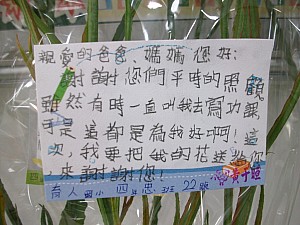 親愛的爸爸、媽媽您好:
謝謝您們平時的照顧
雖然有時一直叫我去寫功課
可是這都是為我好啊!這
次,我要把我的花送給你
,來謝謝您!
有人國小 四年忠班 22號